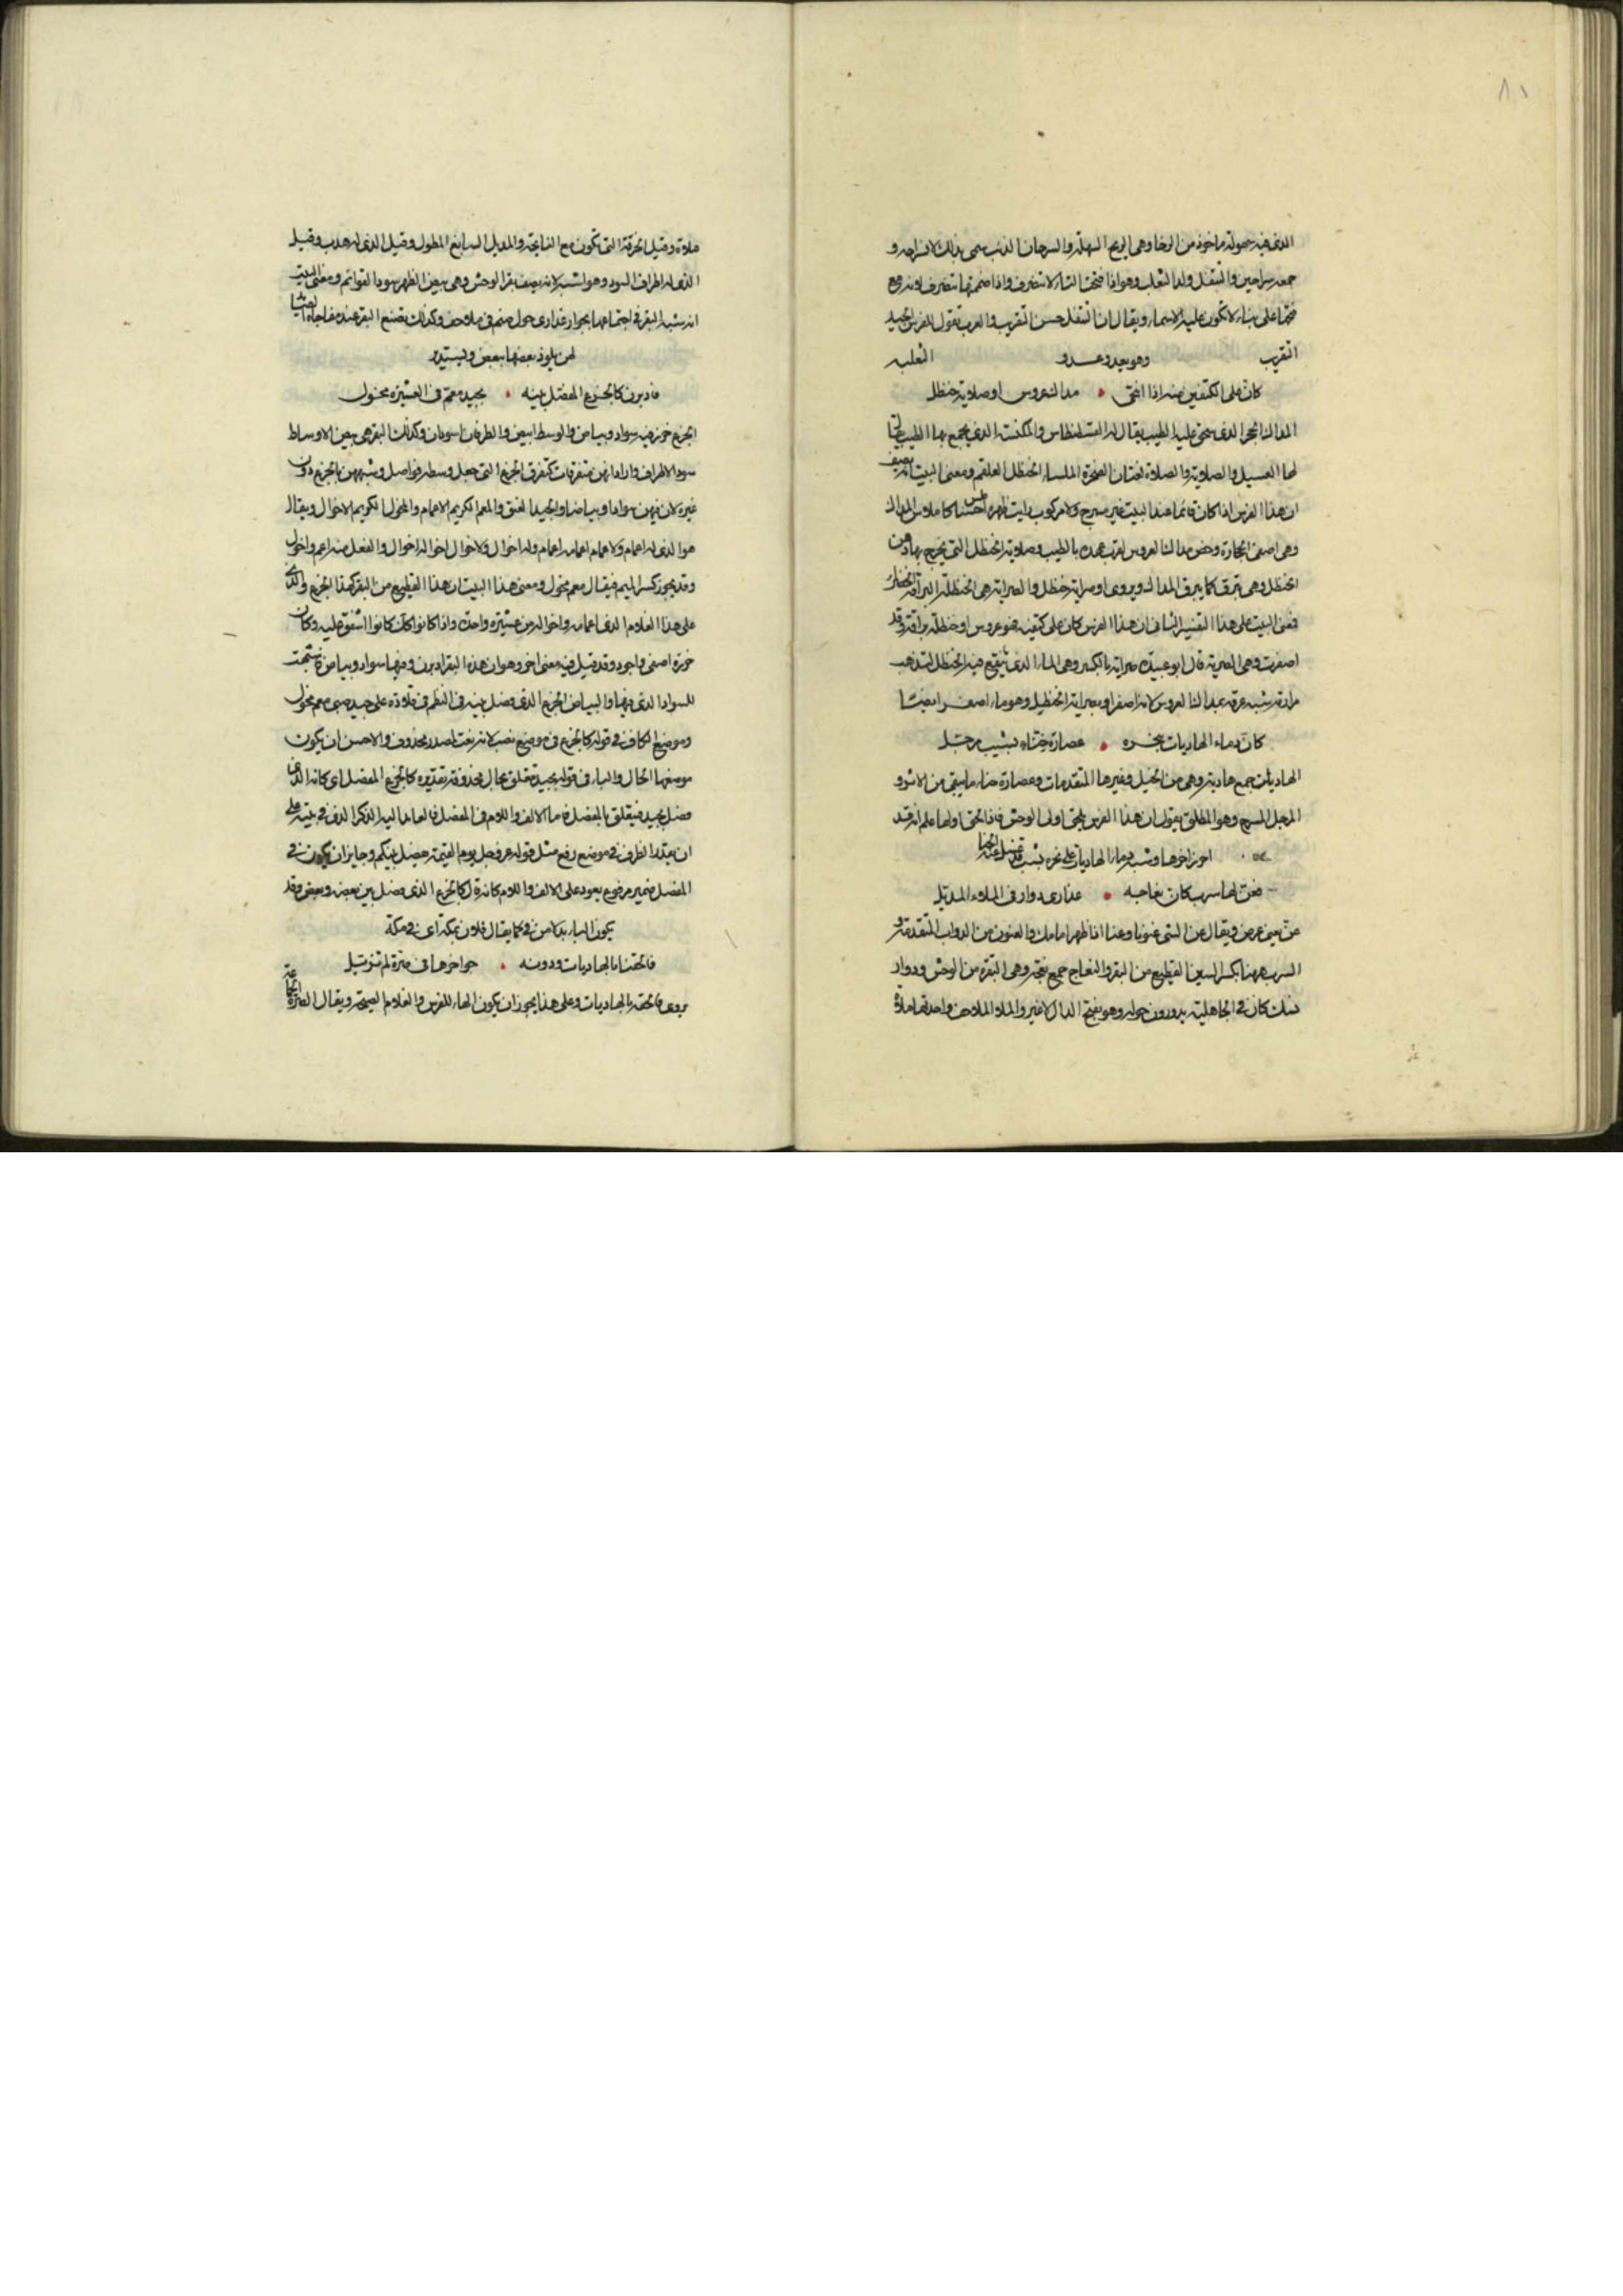 الذي فيه سهولة ماخوذ من الرخا وهي الريح السهلة والسرحان الذئب سمي بذلك لانسراحه و
جمعه سراحين والتتفل ولد الثعلب وهو اذا فتحت التاء لا يتصرف واذا ضمتها يتصرف لانه مع
فتحها على بناء لا تكون عليه الاسماء ويقال ان التتفل حسن التقريب والعرب تقول للفرس الجيد
التقريب وهو يعدو عدو الثعلبه
كان على الكتفين منه اذا انتحى مداك عروس او صلاية حنظل
المداك الحجر الذي يسحق عليه الطيب يقال له القسطناس والمكنسة الذي يجمع بها الطيب يقال
لها العسيل والصلاية والصلاءة لغتان الصخرة الملساء الحنظل العلقم ومعنى البيت انه يصف
ان هذا الفرس اذا كان قائما عند البيت غير مسرج ولا مركوب رايت ظهره املس حسنا كاملاس المداك
وهي اصفى الحجارة وخص مداك العروس لقرب عهده بالطيب وصلاية الحنظل التي يخرج بها دهن
الحنظل وهي تبرق كما يبرق المداك ويروى او صراية حنظل والصراية هي الحنظلة البراقة الخضراء
فمعنى البيت على هذا التفسير الثاني ان هذا الفرس كان على كتفيه ضوء عروس او حنظلة براقة وقد
اصفرت وهي الصراية قال ابو عبيدة صراية بالكسر وهي الماء الذي ينقع فيه الحنظل لتذهب
مرارته شبه عرقه بمداك العروس لانه اصفر او بصراية الحنظل وهو ماء اصفر ايضا
كان دماء الهاديات بنحره عصارة حناء بشيب مرجل
الهاديات جمع هادية وهي من الخيل وغيرها المتقدمات وعصارة حناء ما يبقى من الاثر و
المرجل المسرح وهو المطلق يقول ان هذا الفرس يلحق اولى الوحش فاذا لحق اولها علم انه قد
احرز اخرها وشبه دماء الهاديات على نحره بشيب قد غسل عنه الحنا
فعن لها سرب كان نعاجه عذارى دوار في الملاء المذيل
عن يعني عرض ويقال عن الشي عنونا وعنا اذا ظهر امامك والعنون من الدواب المتقدمة و
السرب ههنا بكسر السين القطيع من البقر والنعاج جمع نعجة وهي البقرة من الوحش ودوار
نسك كان في الجاهلية يدورون حوله وهو بفتح الدال لا غير والملاء الملاحف واحدتها ملاءة
ملاءة وقيل الخرقة التي تكون مع النايحة والمذيل السابغ المطول وقيل الذي له هدب وقيل
الذي له اطراف السود وهو اشبه لانه يصف بقر الوحش وهي بيض الظهر سود القوائم ومعنى البيت
انه شبه البقر في اجتماعها بجوار عذارى حول صنم في ملاحف وكذلك تصنع البقر عند مفاجاة القناص
لهن يلوذ بعضها ببعض ويستدير
فادبرن كالجزع المفصل بينه بجيد معم في العشيرة مخول
الجزع خرز فيه سواد وبياض والوسط ابيض والطرفان اسودان وكذلك البقر هي بيض الاوساط
سود الاطراف واراد انهن متفرقات كتفرق الجزع التي جعل وسطه فواصل وشبههن بالجزع دون
غيره لان فيهن سوادا وبياضا والجيد العنق والمعم الكريم الاعمام والمخول الكريم الاخوال ويقال
هو الذي له اعمام ولاعمامه اعمام وله اخوال ولاخواله اخوال والفعل منه اعم واخول
وقد يجوز كسر الميم فيقال معم مخول ومعنى هذا البيت ان هذا القطيع من البقر كهذا الجزع والذي
على هذا الغلام الذي اعمامه واخواله من عشيرة واحدة واذا كانوا كذلك كانوا اشفق عليه وكان
خرزه اصفى واجود وقد قيل فيه معنى اخر وهو ان هذه البقر ادبرن وفيها سواد وبياض فشبهت
للسواد الذي فيها والبياض الجزع الذي فصل بينه في النظم في قلادة على جيد صبي معم مخول
وموضع الكاف في قوله كالجزع في موضع نصب لانه نعت لمصدر محذوف والاحسن ان يكون
موضعها الحال والباء في قوله بجيد متعلق بحال محذوفة تقديره كالجزع المفصل اي كانه الذي
فصل بجيد فيتعلق بالمفصل فاما الالف واللام في المفصل فالعايد اليه الذكر الذي في بينه على
ان يقدر الظرف في موضع رفع مثل قوله عز وجل يوم القيمة يفصل بينكم وجايز ان يكون في
المفصل ضمير مرفوع يعود على الالف واللام كانه قال كالجزع الذي فصل بين بعضه وبعض وقد
يكون الباء بدلا من في كما يقال فلان بمكة اي في مكة
فالحقنا بالهاديات ودونه جواحرها في صرة لم تزيل
يروى فالحقه بالهاديات وعلى هذا يجوز ان يكون الهاء للفرس والغلام الصيحة ويقال الصرة الجماعة